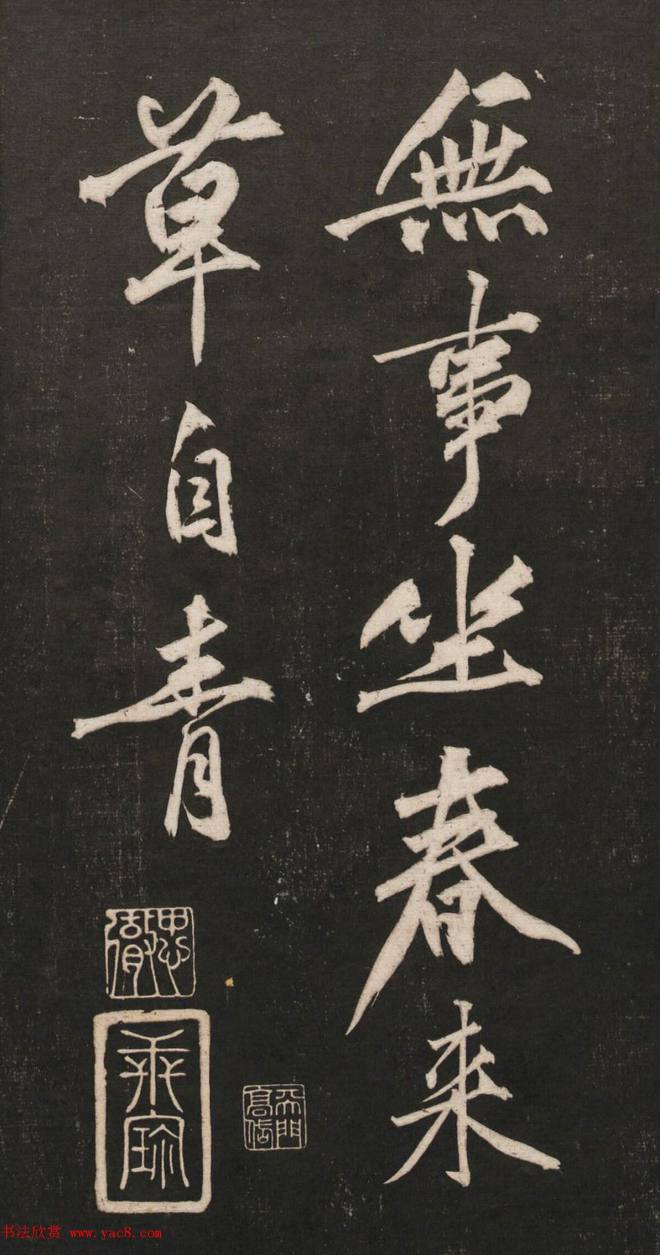 無事坐春来
草自青
書法欣赏 www.yac8.com